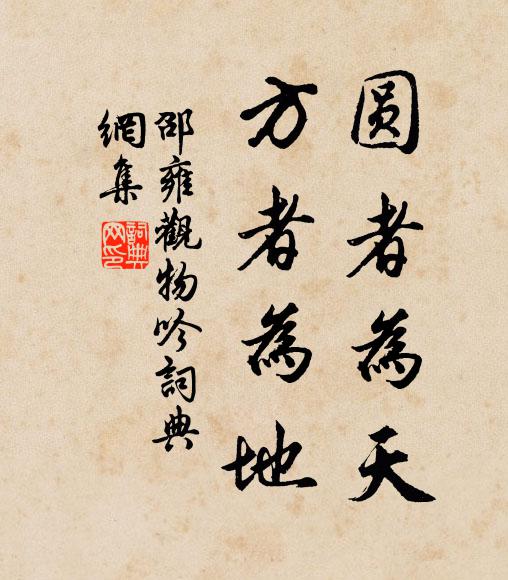 圆者為天
方者為地
邵雍觀物吟詞典
網集
詞典
网印